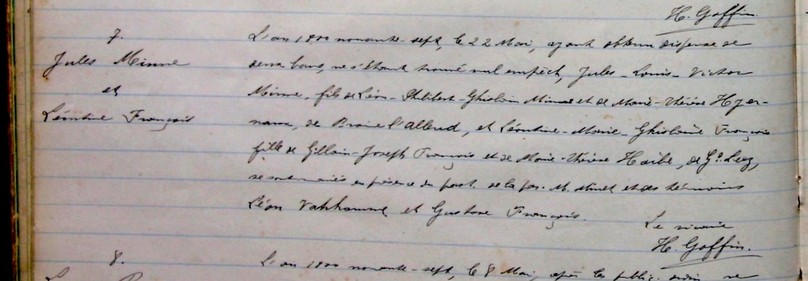 H. Goffin.
7.
Jules Minne
et
Léontine François
L'an 1800 nonante-sept, le 22 Mai, ayant obtenu dispense de
deux bans, ne s'étant trouvé nul empêch. Jules-Louis-Victor
Minne, fils de Léon-Philibert-Ghislain Minne et de Marie-Thérèse
de Braine l'alleud, et Léontine-Marie-Ghislaine François
fille de Gillain-Joseph François et de Marie-Thérèse Haibe, de Gd. Leez,
se sont mariés en présence du et des témoins
Léon et Gustave François.
Le vicaire
H. Goffin.
8.
L'an 1800 nonante-sept, le 8 Mai, après les public. ordin. ne